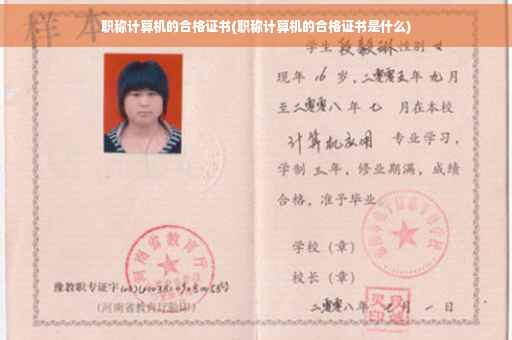 样本
职称计算机的合格证书(职称计算机的合格证书是什么)
学生段毅琳性别女
现年16岁,二零零五年九月
至二零零八年七月在本校
计算机应用 专业学习,
学制三年,修业期满,成绩
合格,准予毕业
学校(章)
校长(章)
二零零八年七月一日
河南省教育厅
豫教职专证字
(河南省教育厅验印)